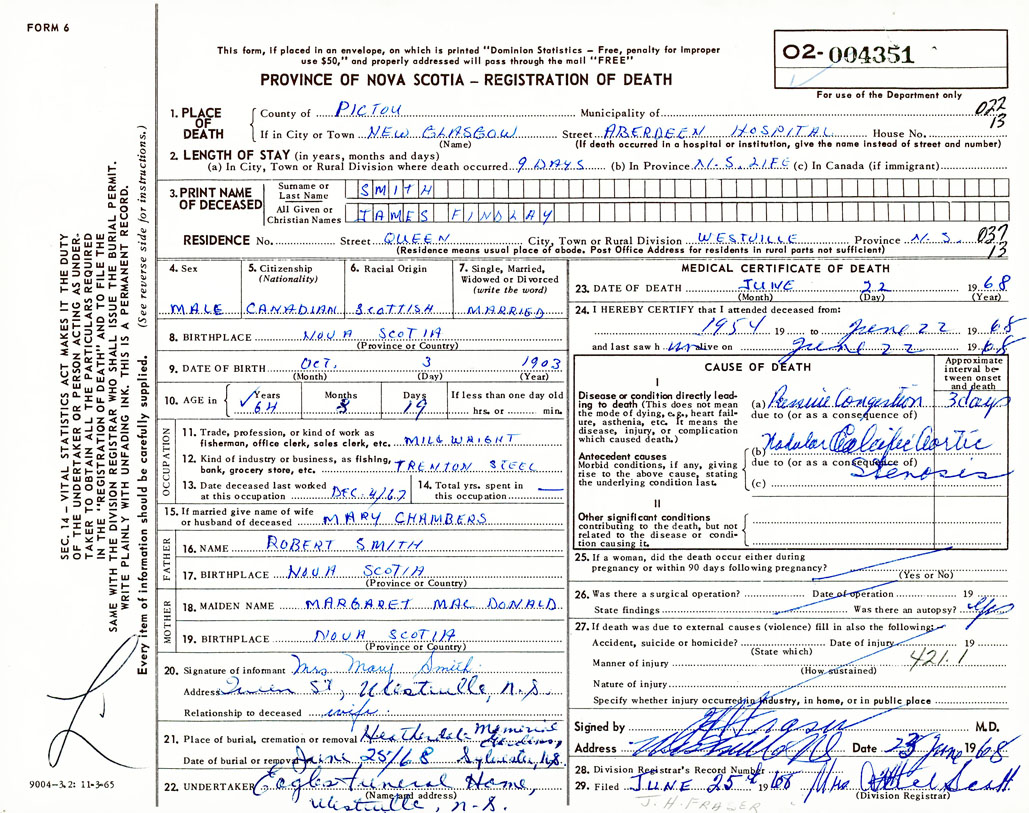 FORM 6
This form, if placed in an envelope, on which is printed "Dominion Statistics – Free, penalty for improper
use $50," and properly addressed will pass through the mail "FREE"
PROVINCE OF NOVA SCOTIA – REGISTRATION OF DEATH
02-004351
For use of the Department only
022
13
1. PLACE OF DEATH
County of PICTOU Municipality of
If in City or Town NEW GLASGOW Street ABERDEEN HOSPITAL House No.
(Name) (If death occurred in a hospital or institution, give the name instead of street and number)
2. LENGTH OF STAY (in years, months and days)
(a) In City, Town or Rural Division where death occurred 9 DAYS (b) In Province N.S. LIFE (c) In Canada (if immigrant)
3. PRINT NAME OF DECEASED
Surname or Last Name SMITH
All Given or Christian Names JAMES FINDLAY
RESIDENCE No. Street QUEEN City, Town or Rural Division WESTVILLE Province N.S. 037
(Residence means usual place of abode. Post Office Address for residents in rural parts not sufficient) 13
4. Sex
MALE
5. Citizenship
(Nationality)
CANADIAN
6. Racial Origin
SCOTTISH
7. Single, Married,
Widowed or Divorced
(write the word)
MARRIED
8. BIRTHPLACE NOVA SCOTIA
(Province or Country)
9. DATE OF BIRTH OCT. 3 1903
(Month) (Day) (Year)
10. AGE in Years Months Days If less than one day old
64 8 19 hrs. or min.
OCCUPATION
11. Trade, profession, or kind of work as
fisherman, office clerk, sales clerk, etc. MILLWRIGHT
12. Kind of industry or business, as fishing,
bank, grocery store, etc. TRENTON STEEL
13. Date deceased last worked
at this occupation DEC. 4/67
14. Total yrs. spent in
this occupation —
15. If married give name of wife
or husband of deceased MARY CHAMBERS
FATHER
16. NAME ROBERT SMITH
17. BIRTHPLACE NOVA SCOTIA
(Province or Country)
MOTHER
18. MAIDEN NAME MARGARET MAC DONALD
19. BIRTHPLACE NOVA SCOTIA
(Province or Country)
20. Signature of informant Mrs. Mary Smith
Address Queen St., Westville, N.S.
Relationship to deceased wife
21. Place of burial, cremation or removal Heatherdale Memorial Gardens,
Date of burial or removal June 25/68 Sylvester, N.S.
22. UNDERTAKER Eagles Funeral Home,
(Name and address)
Westville, N.S.
MEDICAL CERTIFICATE OF DEATH
23. DATE OF DEATH JUNE 22 1968
(Month) (Day) (Year)
24. I HEREBY CERTIFY that I attended deceased from:
1954 19 to June 22 1968
and last saw him alive on June 22 1968
CAUSE OF DEATH
Approximate
interval be-
tween onset
and death
I
Disease or condition directly lead-
ing to death (This does not mean
the mode of dying, e.g., heart fail-
ure, asthenia, etc. It means the
disease, injury, or complication
which caused death.)
(a) Passive Congestion 3 days
due to (or as a consequence of)
Antecedent causes
Morbid conditions, if any, giving
rise to the above cause, stating
the underlying condition last.
(b) Nodular Calcific Aortic
due to (or as a consequence of)
Stenosis
(c)
II
Other significant conditions
contributing to the death, but not
related to the disease or condi-
tion causing it.
25. If a woman, did the death occur either during
pregnancy or within 90 days following pregnancy?
(Yes or No)
26. Was there a surgical operation? Date of operation 19
State findings Was there an autopsy? Yes
27. If death was due to external causes (violence) fill in also the following:
Accident, suicide or homicide? Date of injury 19
(State which)
Manner of injury 421.1
(How sustained)
Nature of injury
Specify whether injury occurred in industry, in home, or in public place
Signed by M.D.
Address Westville NS Date 23 June 1968
28. Division Registrar's Record Number
29. Filed JUNE 25th 1968 Mrs. Scott
(Division Registrar)
J. H. FRASER
SEC. 14 – VITAL STATISTICS ACT MAKES IT THE DUTY
OF THE UNDERTAKER OR PERSON ACTING AS UNDER-
TAKER TO OBTAIN ALL THE PARTICULARS REQUIRED
IN THE "REGISTRATION OF DEATH" AND TO FILE THE
SAME WITH THE DIVISION REGISTRAR WHO SHALL ISSUE THE BURIAL PERMIT.
WRITE PLAINLY WITH UNFADING INK. THIS IS A PERMANENT RECORD.
Every item of information should be carefully supplied. (See reverse side for instructions.)
9004–3.2: 11-3-65